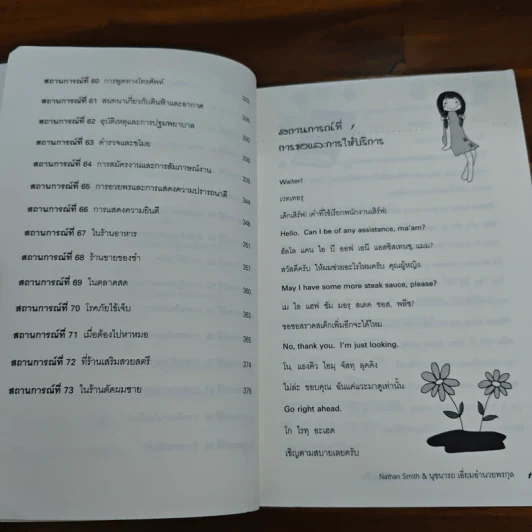 สถานการณ์ที่ 60 การพูดทางโทรศัพท์
สถานการณ์ที่ 61 สนทนาเกี่ยวกับดินฟ้าและอากาศ 332
สถานการณ์ที่ 62 อุบัติเหตุและการปฐมพยาบาล
สถานการณ์ที่ 63 ตำรวจและขโมย
สถานการณ์ที่ 64 การสมัครงานและการสัมภาษณ์งาน
สถานการณ์ที่ 65 การอวยพรและการแสดงความปรารถนาดี
สถานการณ์ที่ 66 การแสดงความยินดี 344
สถานการณ์ที่ 67 ในร้านอาหาร
สถานการณ์ที่ 68 ร้านขายของชำ 357
สถานการณ์ที่ 69 ในตลาดสด 360
สถานการณ์ที่ 70 โรคภัยไข้เจ็บ 363
สถานการณ์ที่ 71 เมื่อต้องไปหาหมอ 365
สถานการณ์ที่ 72 ที่ร้านเสริมสวยสตรี 374
สถานการณ์ที่ 73 ในร้านตัดผมชาย 376
สถานการณ์ที่ 1
การขอและการให้บริการ
Waiter!
เวทเทอรฺ
เด็กเสิร์ฟ! (คำที่ใช้เรียกพนักงานเสิร์ฟ)
Hello. Can I be of any assistance, ma'am?
ฮัลโล แคน ไอ บี ออฟ เอนี แอสซิสเทนซฺ แมม?
สวัสดีครับ ให้ผมช่วยอะไรไหมครับ คุณผู้หญิง
May I have some more steak sauce, please?
เม ไอ แฮฟ ซัม มอรฺ สเตค ซอส, พลีซ?
ขอซอสราดสเต็กเพิ่มอีกจะได้ไหม
No, thank you. I'm just looking.
โน, แธงคิว ไอมฺ จัสทฺ ลุคคิง
ไม่ล่ะ ขอบคุณ ฉันแค่แวะมาดูเท่านั้น
Go right ahead.
โก ไรทฺ อะเฮด
เชิญตามสบายเลยครับ
Nathan Smith & นุชนารถ เอี่ยมอำนวยพรกุล 1